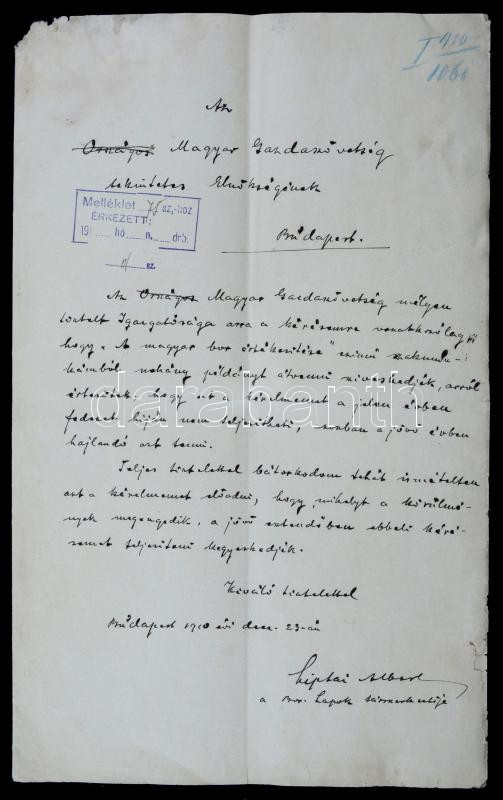 I 910
106
Az
Országos Magyar Gazdaszövetség
tekintetes Elnökségének
Melléklet 78 sz.-hoz
ÉRKEZETT:
19 hó n. drb.
sz.
Budapest.
Az Országos Magyar Gazdaszövetség mélyen
tisztelt Igazgatósága arra a kérésemre vonatkozólag,
hogy „A magyar bor értékesítése" czímű szakmun-
kámból néhány példányt átvenni szíveskedjék, arról
értesített, hogy ezt a kérelmemet a jelen évben
fedezet híján nem teljesítheti, azonban a jövő évben
hajlandó azt tenni.
Teljes tisztelettel bátorkodom tehát ismételten
azt a kérelmemet előadni, hogy, mihelyt a körülmé-
nyek megengedik, a jövő esztendőben ebbeli kéré-
semet teljesíteni kegyeskedjék.
Kiváló tisztelettel
Budapest 1910 évi dec. 23-án
Liptai Albert
a Bor. Lapok társszerkesztője
darabanth